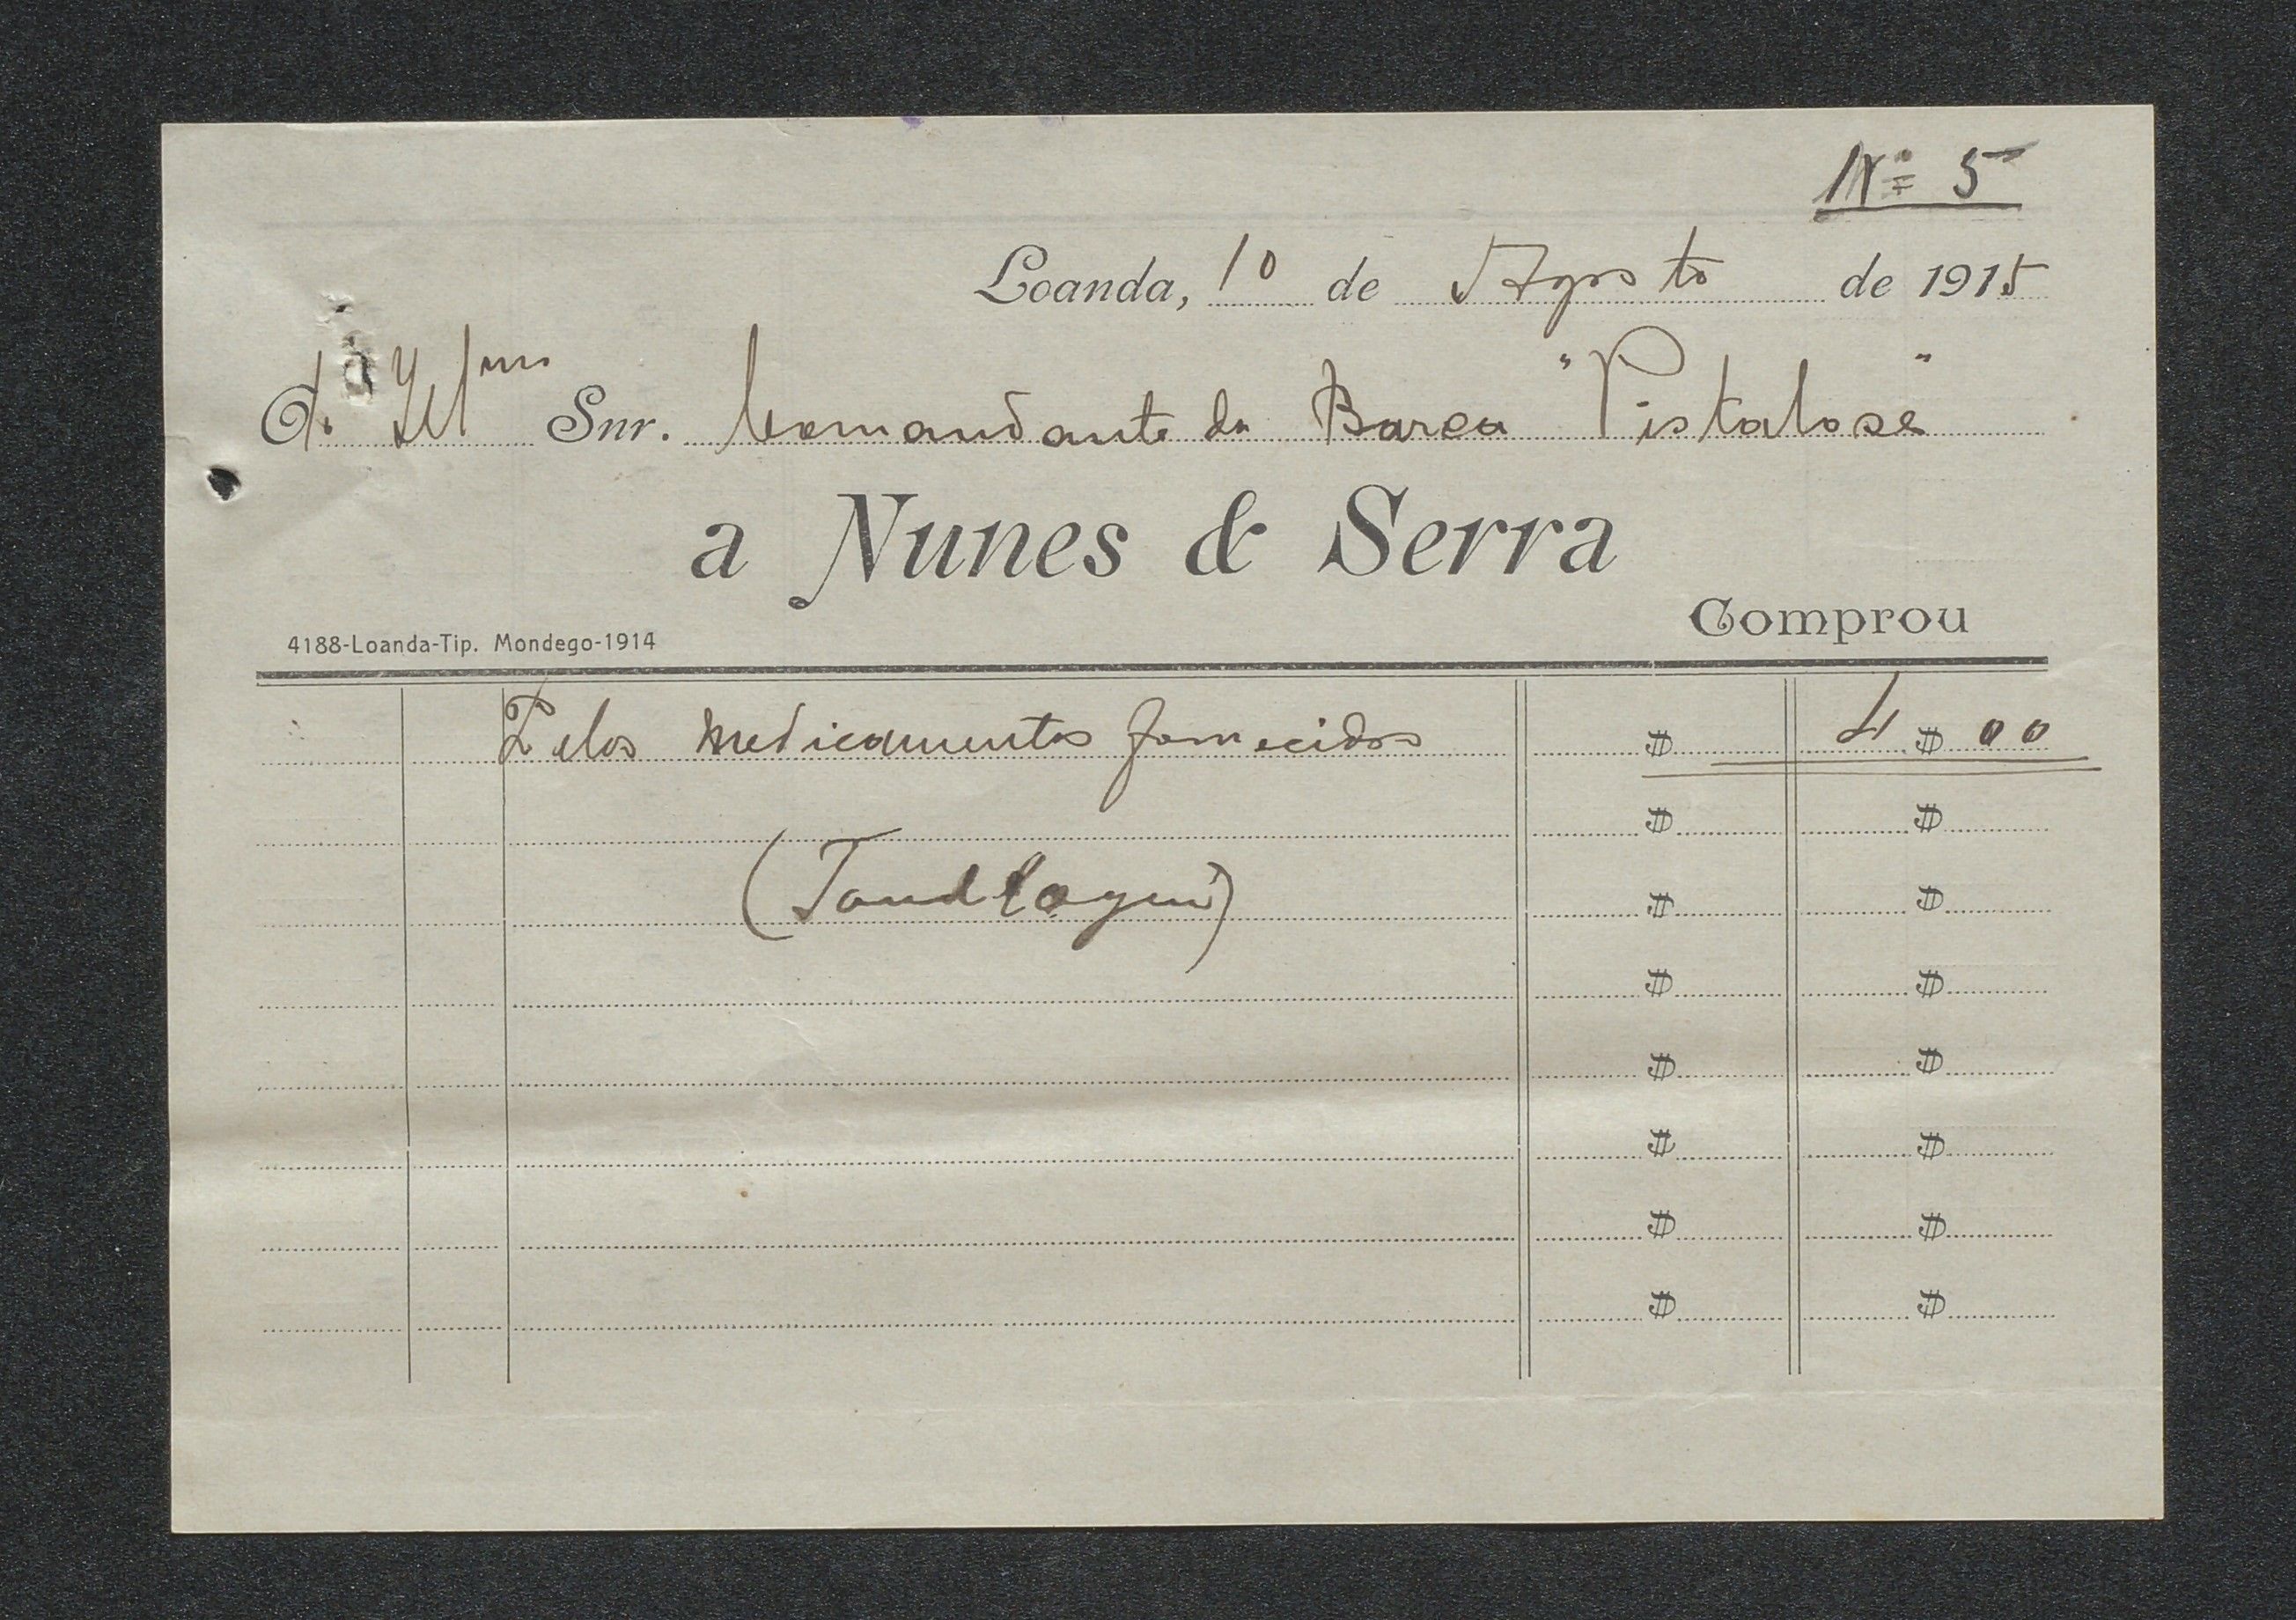 Nº 5
Loanda, 10 de Agosto de 1915
O Illmo Snr. Comandante da Barca "Pistalose"
a Nunes & Serra
Comprou
4188-Loanda-Tip. Mondego-1914
Pelos medicamentos fornecidos $ 4 $ 00
$ $
$ $
$ $
$ $
$ $
$ $
$ $